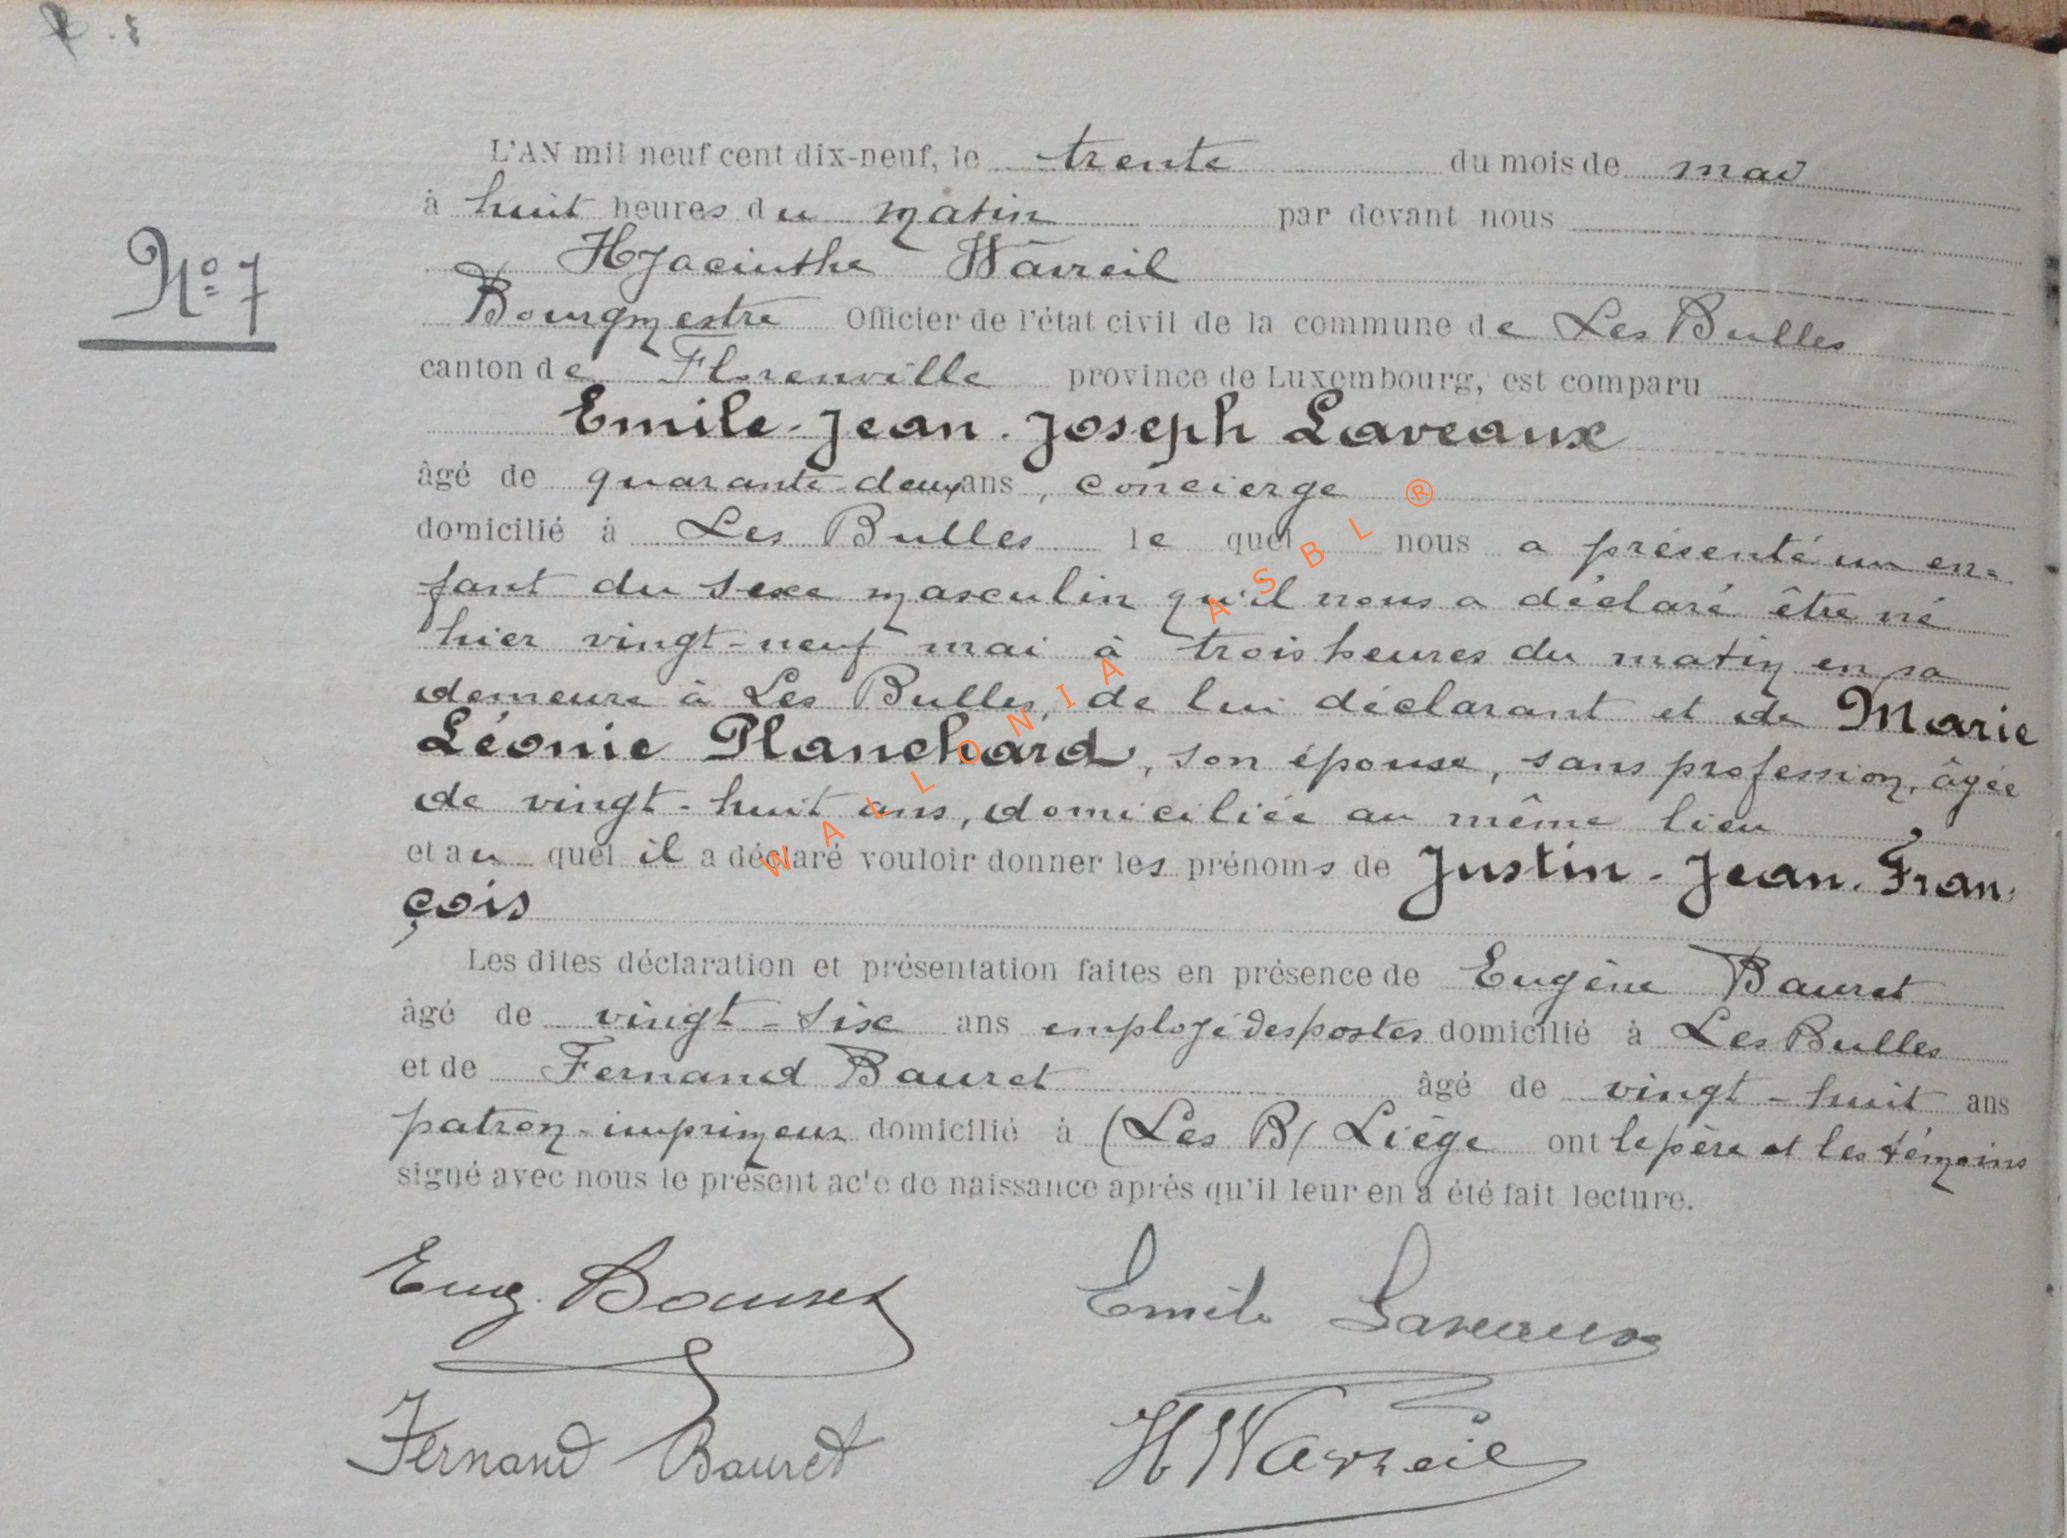 N° 7
L'AN mil neuf cent dix-neuf, le trente du mois de mai
à huit heures du matin par devant nous
Hyacinthe Wavreil
Bourgmestre Officier de l'état civil de la commune de Les Bulles
canton de Florenville province de Luxembourg, est comparu
Emile-Jean-Joseph Laveaux
âgé de quarante-deux ans, concierge
domicilié à Les Bulles le quel nous a présenté un en=
fant du sexe masculin qu'il nous a déclaré être né
hier vingt-neuf mai à trois heures du matin en sa
demeure à Les Bulles, de lui déclarant et de Marie
Léonie Planchard, son épouse, sans profession, âgée
de vingt-huit ans, domiciliée au même lieu
et au quel il a déclaré vouloir donner les prénoms de Justin-Jean-Fran-
çois
Les dites déclaration et présentation faites en présence de Eugène Bauret
âgé de vingt-six ans employé des postes domicilié à Les Bulles
et de Fernand Bauret âgé de vingt-huit ans
patron-imprimeur domicilié à (Les B/ Liège ont le père et les témoins
signé avec nous le présent acte de naissance après qu'il leur en a été fait lecture.
Eug. Bauret Emile Laveaux
Fernand Bauret H Wavreil
WALLONIA ASBL ®